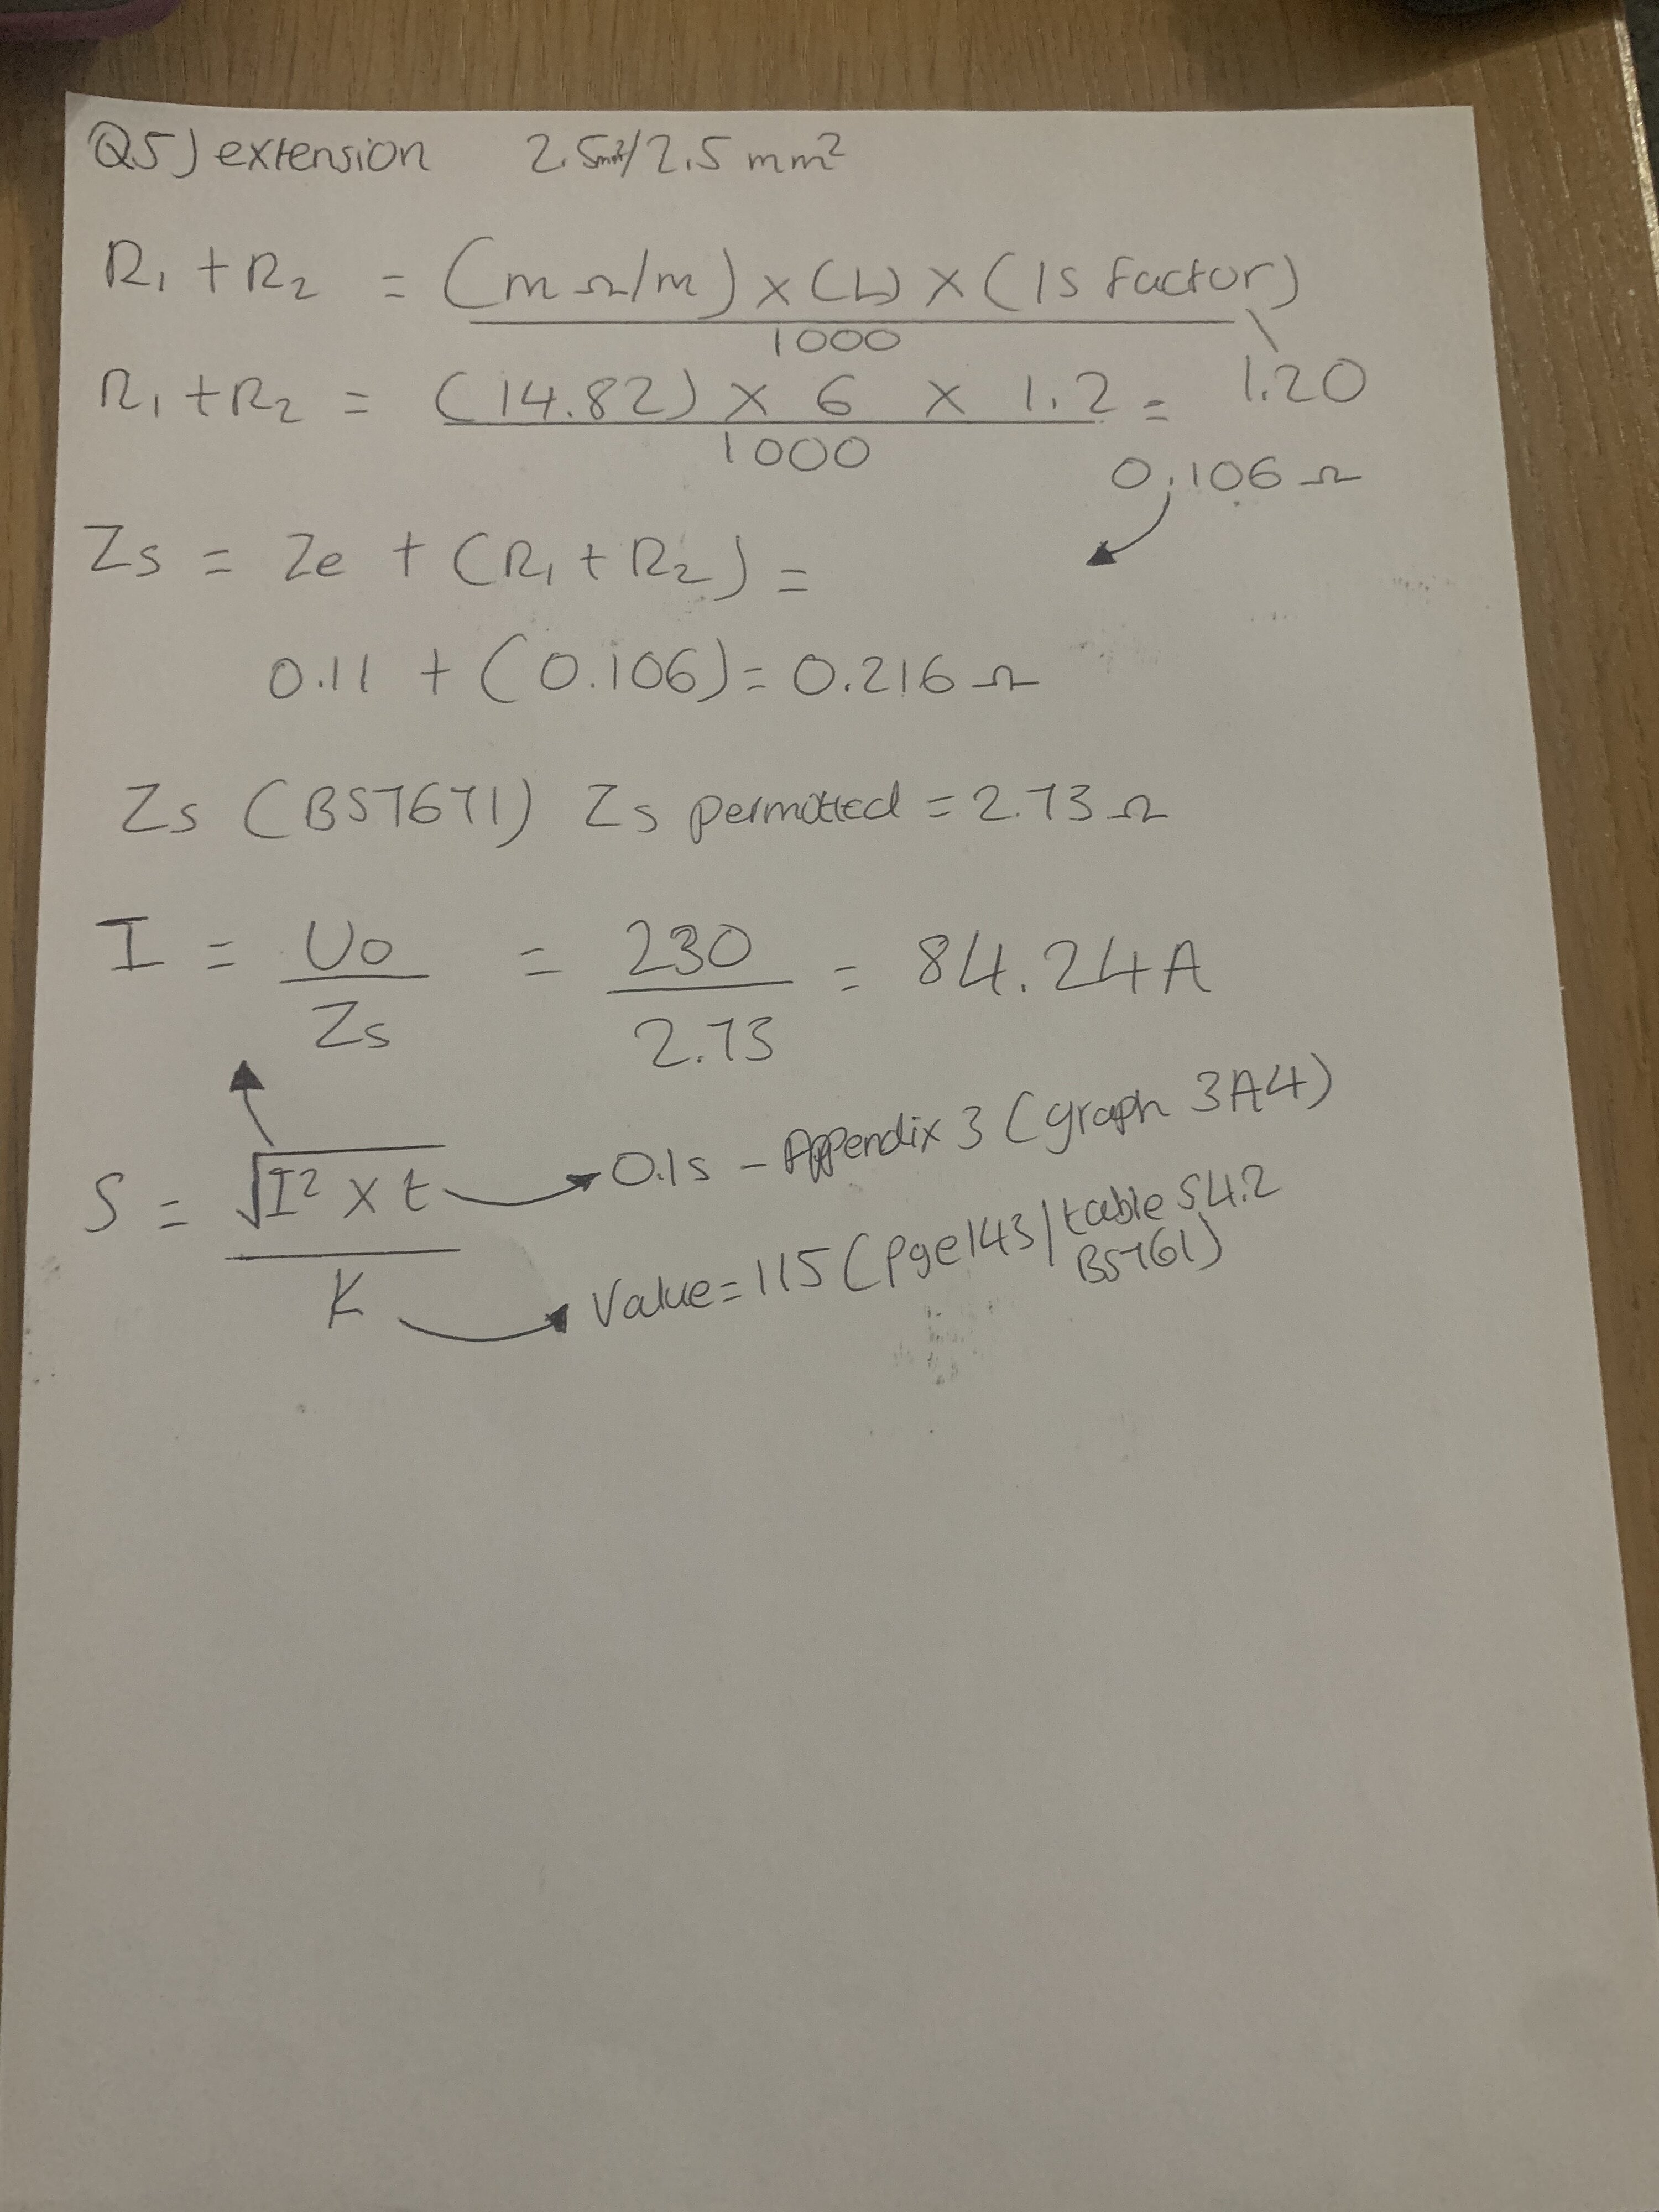 Q5) extension 2.5mm²/2.5 mm²
R₁ + R₂ = (mΩ/m) x (L) x (1s factor)
1000
1.20
R₁ + R₂ = (14.82) x 6 x 1.2 =
1000
0.106 Ω
Zs = Ze + (R₁ + R₂) =
0.11 + (0.106) = 0.216 Ω
Zs (BS7671) Zs permitted = 2.73 Ω
I = Uo = 230 = 84.24A
Zs 2.73
S = √I² x t 0.1s - Appendix 3 (graph 3A4)
K Value = 115 (pge143/table 54.2
BS761)